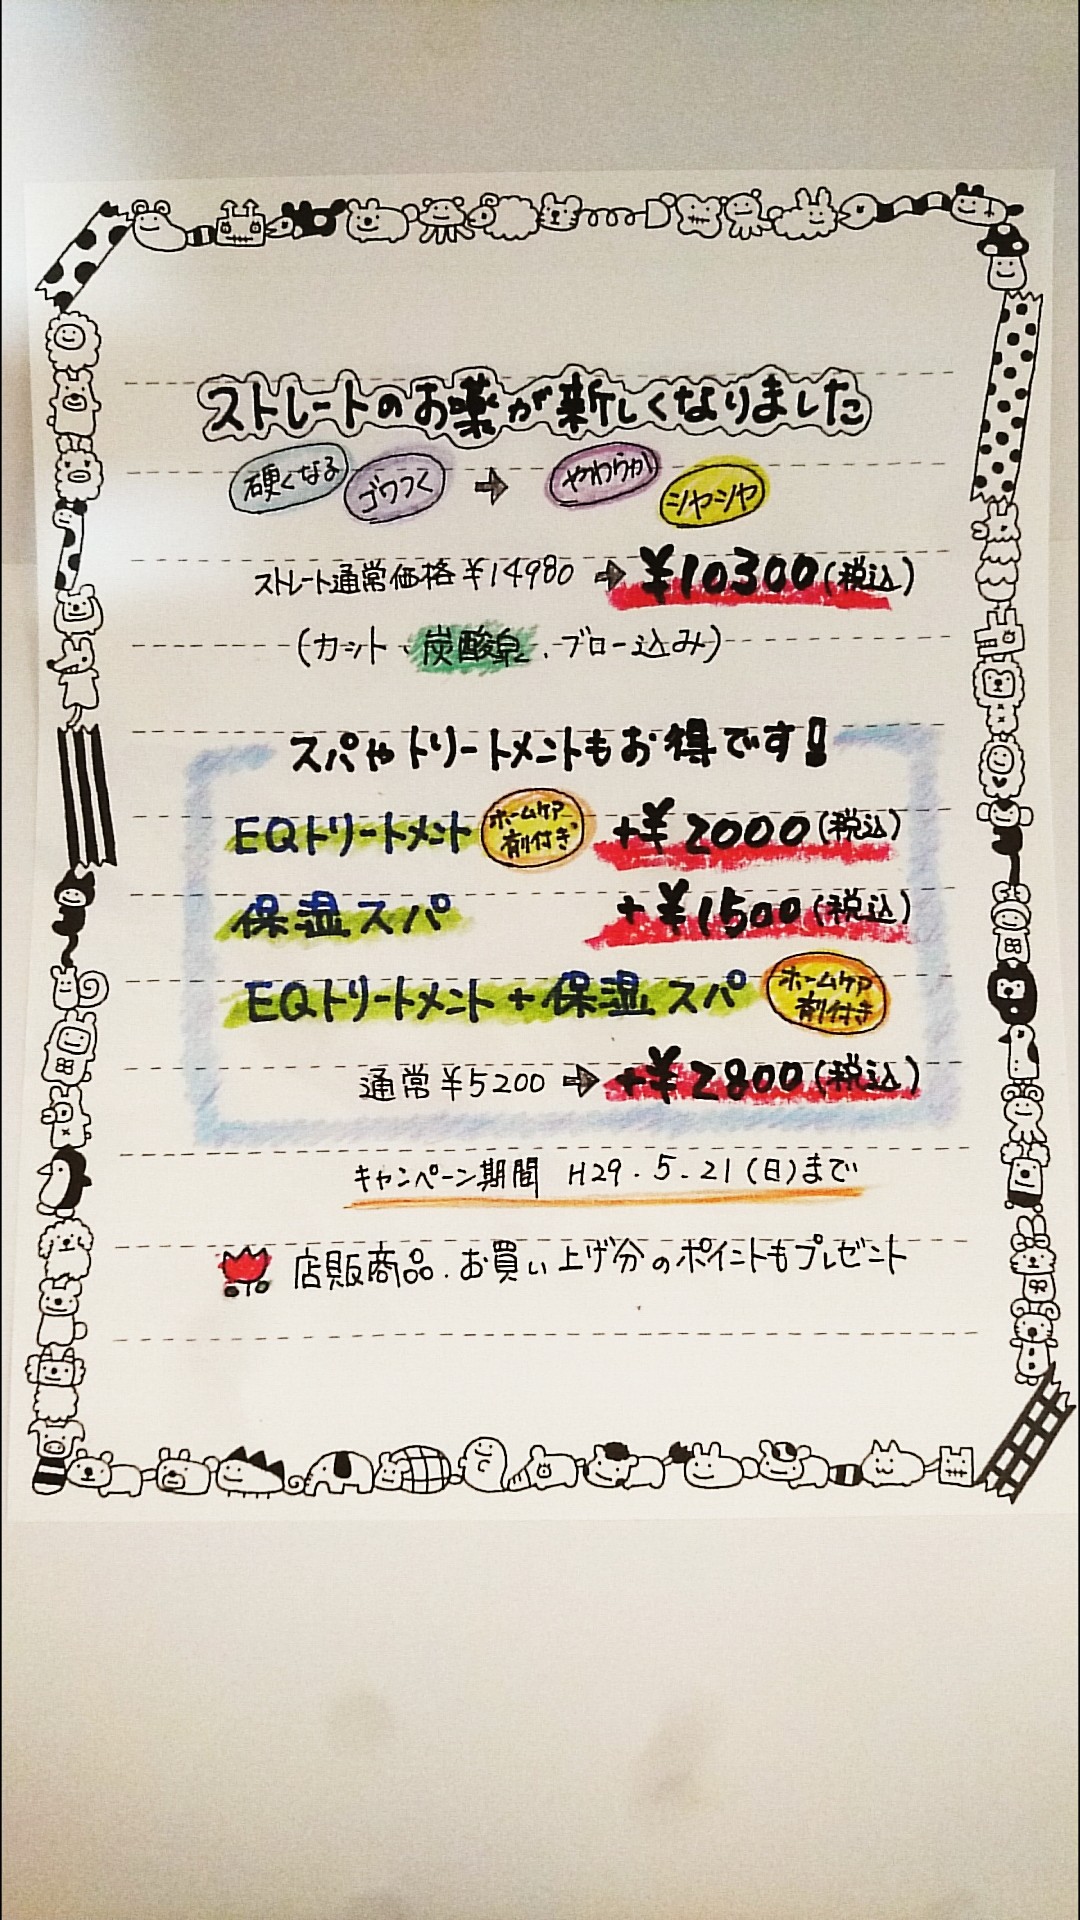 ストレートのお薬が新しくなりました
硬くなる ゴワつく ➡ やわらか シャシャ
ストレート通常価格¥14980 ➡ ¥10300(税込)
(カット・炭酸泉.ブロー込み)
スパやトリートメントもお得です!
EQトリートメント ホームケア剤付き +¥2000(税込)
保湿スパ +¥1500(税込)
EQトリートメント+保湿スパ ホームケア剤付き
通常¥5200 ➡ +¥2800(税込)
キャンペーン期間 H29.5.21(日)まで
店販商品.お買い上げ分のポイントもプレゼント